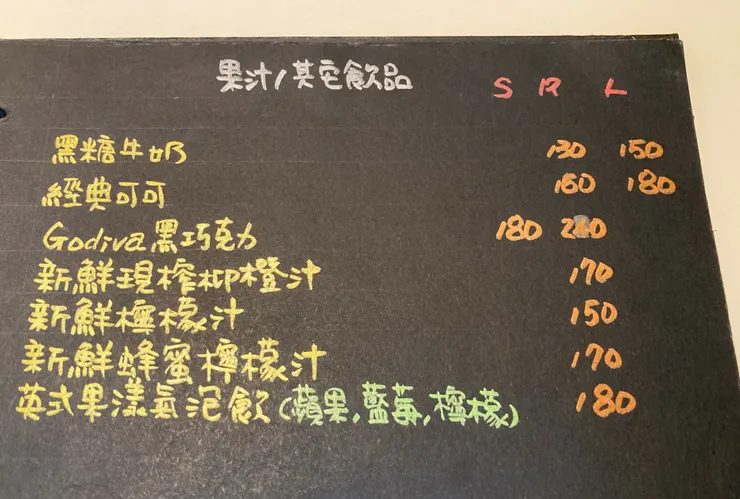 果汁/其它飲品 S R L
黑糖牛奶 130 150
經典可可 160 180
Godiva黑巧克力 180
新鮮現榨柳橙汁 170
新鮮檸檬汁 150
新鮮蜂蜜檸檬汁 170
英式果漾氣泡飲(蘋果,藍莓,檸檬) 180